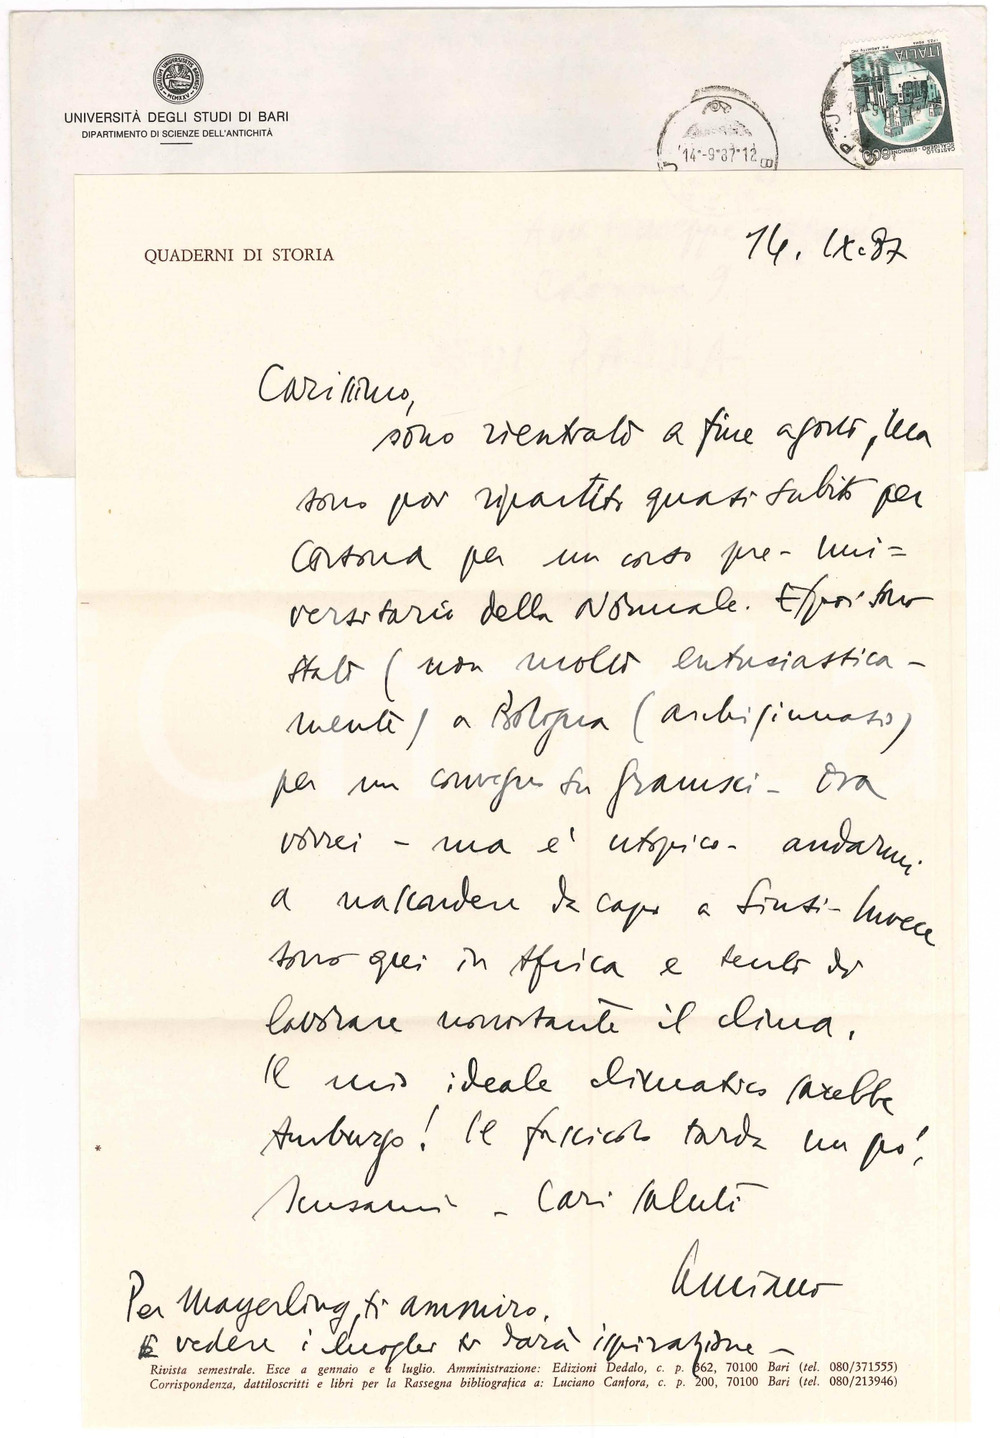 UNIVERSITÀ DEGLI STUDI DI BARI
DIPARTIMENTO DI SCIENZE DELL'ANTICHITÀ
14-9-87-12
ITALIA
QUADERNI DI STORIA
14. IX. 87
Carissimo,
sono rientrato a fine agosto, ma
sono poi ripartito quasi subito per
Cortona per un corso pre-uni=
versitario della Normale. E poi sono
stato (non molto entusiastica-
mente) a Bologna (archiginnasio)
per un convegno su Gramsci - Ora
vorrei - ma è utopico - andarmi
a nascondere da capo a Sinti - Invece
sono qui in Africa e tento di
lavorare nonostante il clima.
Il mio ideale climatico sarebbe
Amburgo! Il fascicolo tarda un po',
scusami - Cari saluti
Luciano
Per Mayerling, ti ammiro.
E vedere i luoghi ti darà ispirazione -
Rivista semestrale. Esce a gennaio e a luglio. Amministrazione: Edizioni Dedalo, c. p. 362, 70100 Bari (tel. 080/371555)
Corrispondenza, dattiloscritti e libri per la Rassegna bibliografica a: Luciano Canfora, c. p. 200, 70100 Bari (tel. 080/213946)